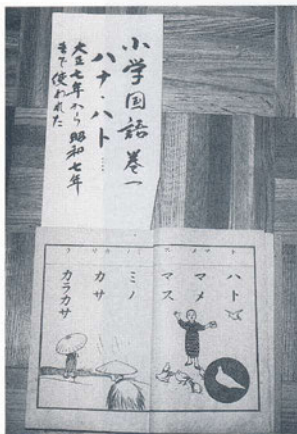 小学国語巻一
ハナ・ハト……
大正七年から昭和七年
まで使われた
ハト
マメ
マス
ミノ
カサ
カラカサ